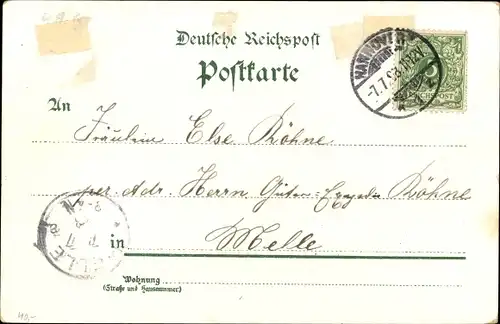 Deutsche Reichspost
Postkarte
HANNOVER
-7.7.98.
REICHSPOST
An
Fräulein Else Köhne
per. Adr. Herrn Güter- Köhne
in Melle
MELLE
7 7
Wohnung
(Straße und Hausnummer)
40,-